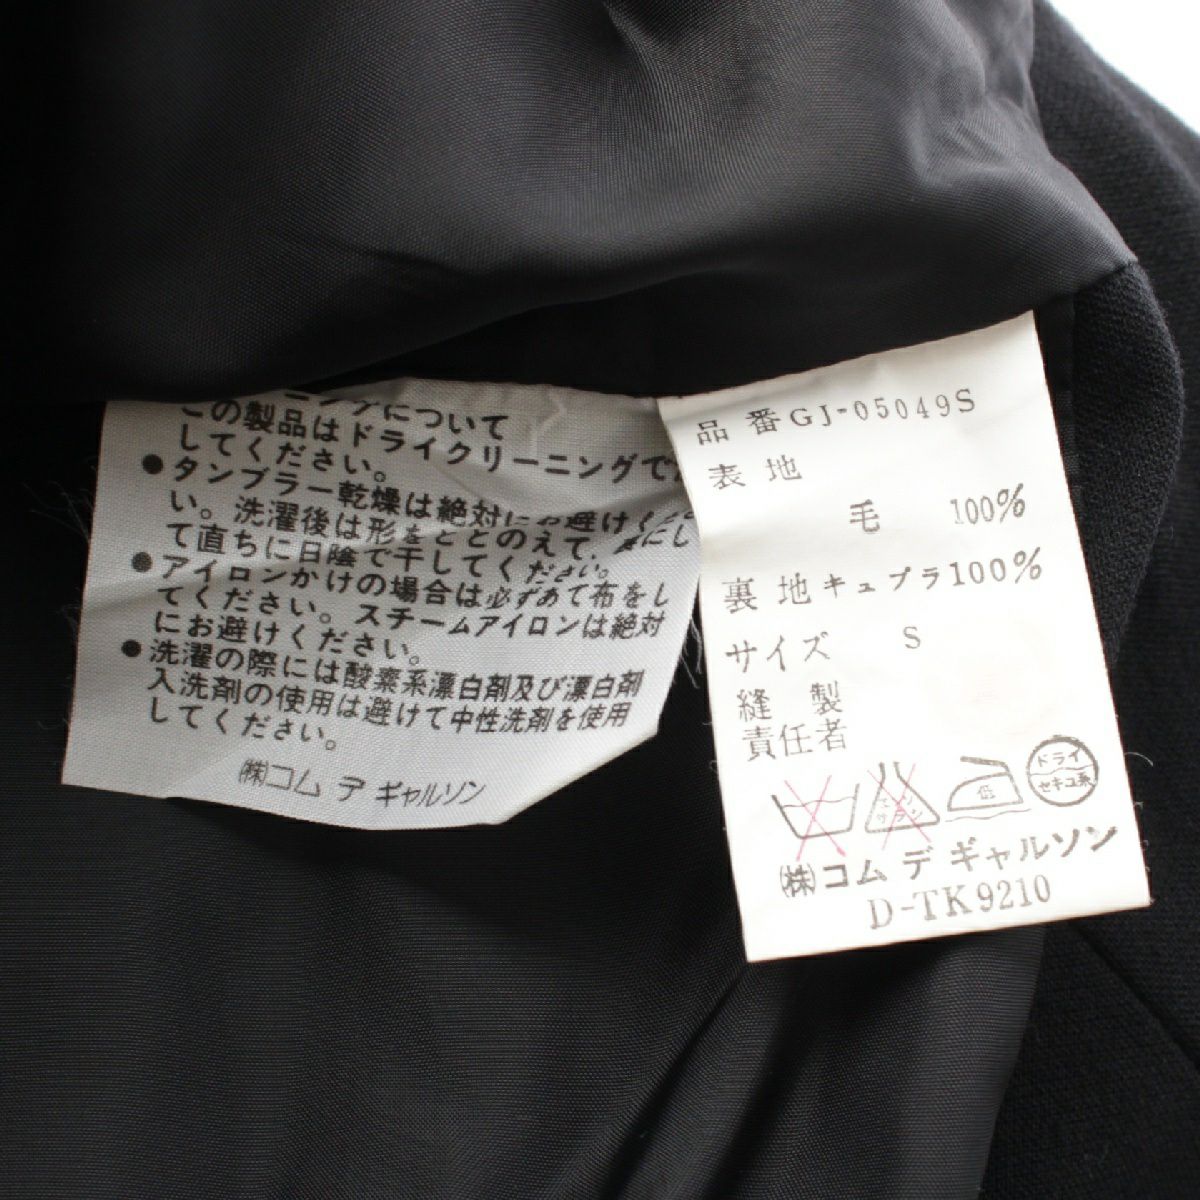 ニングについて
この製品はドライクリーニングで
してください。
●タンブラー乾燥は絶対にお避けくださ
い。洗濯後は形をととのえて、
て直ちに日陰で干してください。
●アイロンかけの場合は必ずあて布をし
てください。スチームアイロンは絶対
にお避けください。
●洗濯の際には酸素系漂白剤及び漂白剤
入洗剤の使用は避けて中性洗剤を使用
してください。
㈱コム デ ギャルソン
品 番 GJ-05049S
表 地
毛 100%
裏 地 キュプラ 100%
サイズ S
縫 製
責任者
エンソ
サラシ
低
ドライ
セキユ系
㈱コム デ ギャルソン
D-TK9210